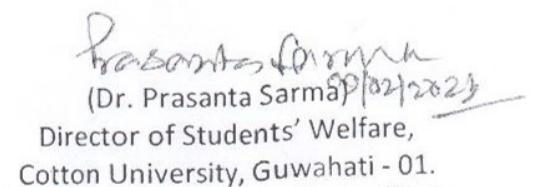 Prasanta Sarma
(Dr. Prasanta Sarma)
Director of Students' Welfare,
Cotton University, Guwahati - 01.